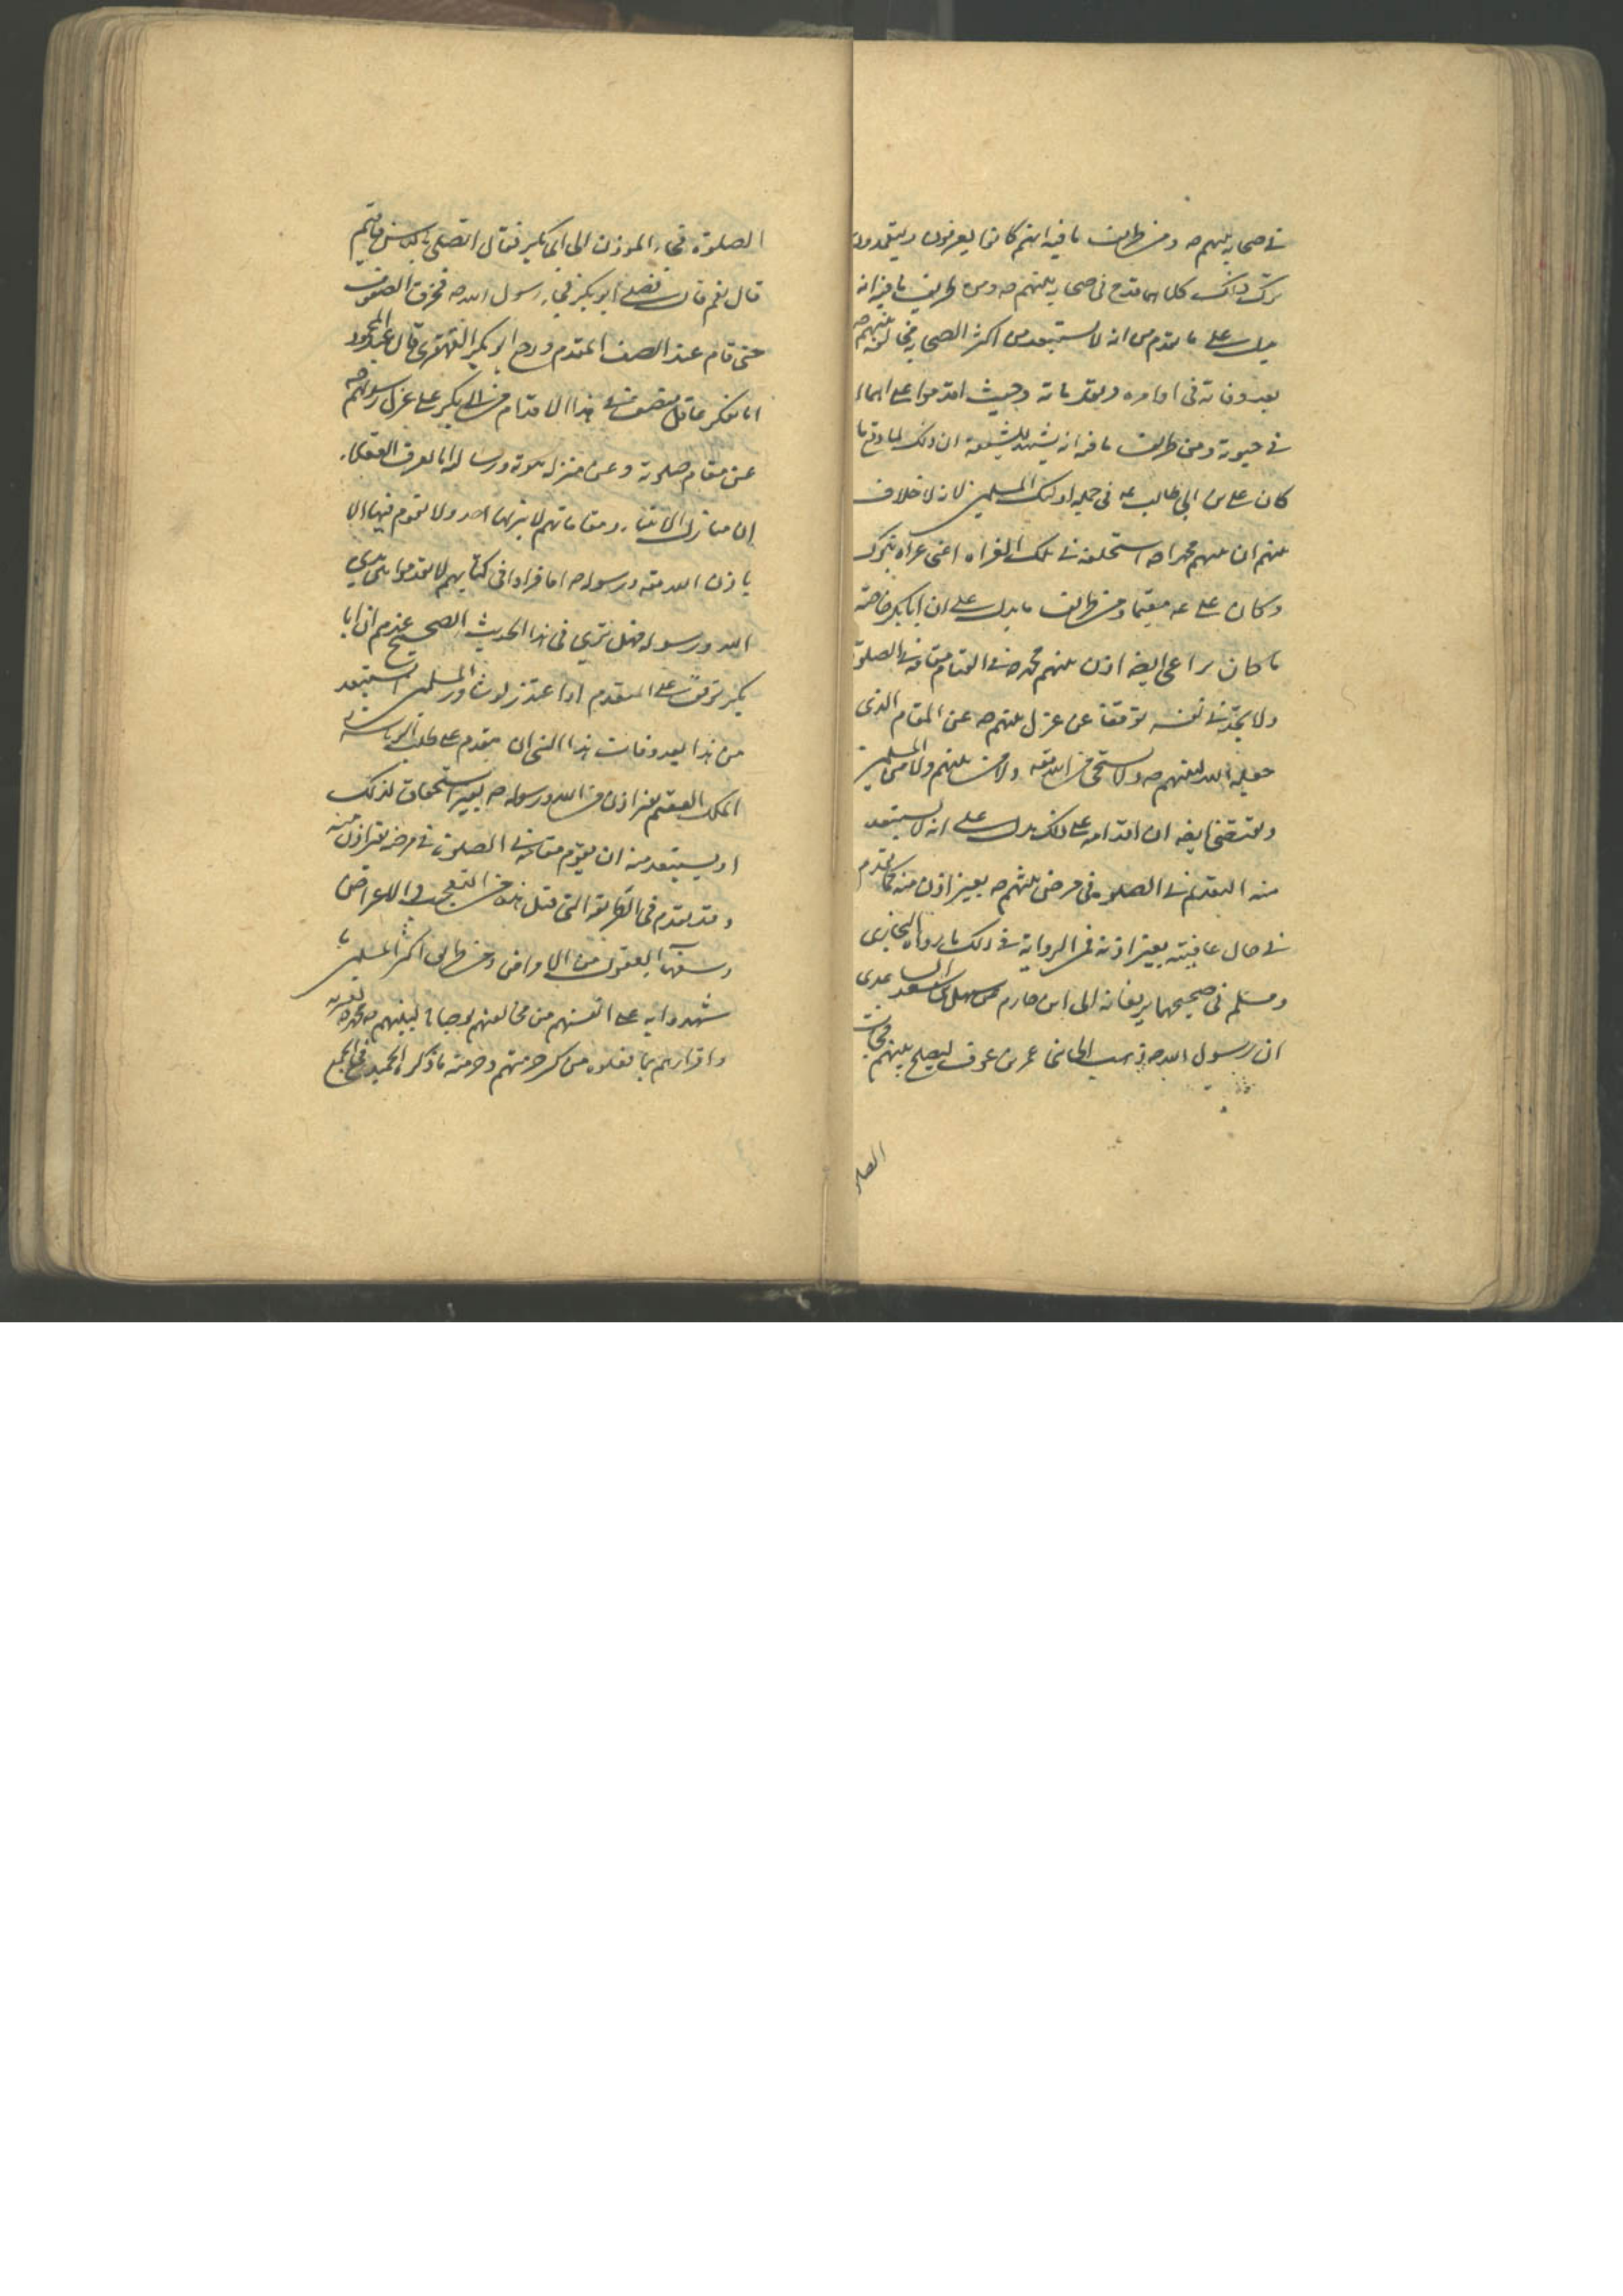 في صحابة نبيهم ص ومن طرايف ما فيه انهم كانوا يعرفون ويعتقدون
ترك ذلك كلما قدح في صحابة نبيهم ص ومن طرايف ما فيه انه
يدل على ما تقدم من انه لا يستبعد من اكثر الصحابة مخالفة نبيهم ص
بعد وفاته في اوامره ووصاياته وحيث اقدموا على اهمال
في حيوته ومن طرايف ما فيه انه يشهد للشيعة ان ذلك لما وقع ما
كان علي بن ابي طالب ع في جملة اولئك المسلمين لانه لا خلاف
بينهم ان نبيهم محمدا ص استخلفه في تلك الغزاة اعني غزاة تبوك
وكان علي ع مقيما ومن طرايف ما يدل على ان ابا بكر خاصة
ما كان يراعي ايضا اذن نبيهم محمد ص في القيام مقامه في الصلوة
ولا يجد في نفسه توقفا عن عزل نبيهم ص عن المقام الذي
جعله الله لنبيهم ص ولا يستحي من الله تعه ولا من نبيهم ولا من المسلمين
ويقتضي ايضا ان اقدامه على ذلك يدل على انه لا يستبعد
منه التقدم في الصلوة في مرض نبيهم ص بغير اذن منه كما تقدم
في حال عافيته بغير اذنه فمن الرواية في ذلك ما رواه البخاري
ومسلم في صحيحهما يرفعانه الى ابي حازم عن سهل بن سعد الساعدي
ان رسول الله ص ذهب الى بني عمرو بن عوف ليصلح بينهم فحانت
الصلو
الصلوة فجاء المؤذن الى ابي بكر فقال اتصلي بالناس فاقيم
قال نعم قال فصلى ابو بكر فجاء رسول الله ص فخرق الصفوف
حتى قام عند الصف المقدم ورجع ابو بكر القهقرى قال عبد المحمود
اما يفكر عاقل منصف في هذا الاقدام من ابي بكر على عزل رسولهم ص
عن مقام صلوته وعن منزلة نبوته ورسالته اما يعرف العقلاء
ان منازل الانبياء ومقاماتهم لا ينزلها احد ولا يقوم فيها الا
باذن الله تعه ورسوله ص اما قراوا في كتابهم لا تقدموا بين يدي
الله ورسوله فهل ترى في هذا الحديث الصحيح عندهم ان ابا
بكر توقف على التقدم او اعتذر او شاور المسلمين افيستبعد
من هذا بعد وفات هذا النبي ان يتقدم على طلب الرياسة
الملك العقيم بغير اذن من الله ورسوله ص بغير استحقاق لذلك
او يستبعد منه ان يقوم مقامه في الصلوة في مرضه بغير اذن منه
وقد تقدم في الطريقة التي قبل هذا من التعجب والاعراض
وسفهاء العقول من الامراض ومن طرايف اكثر المسلمين ما
شهدوا به على انفسهم من مخالفتهم لوصايا نبيهم محمد ص لقربه
واقرارهم بما فعلوه من كسر حرمتهم وحرمته ما ذكره الحميدي في الجمع